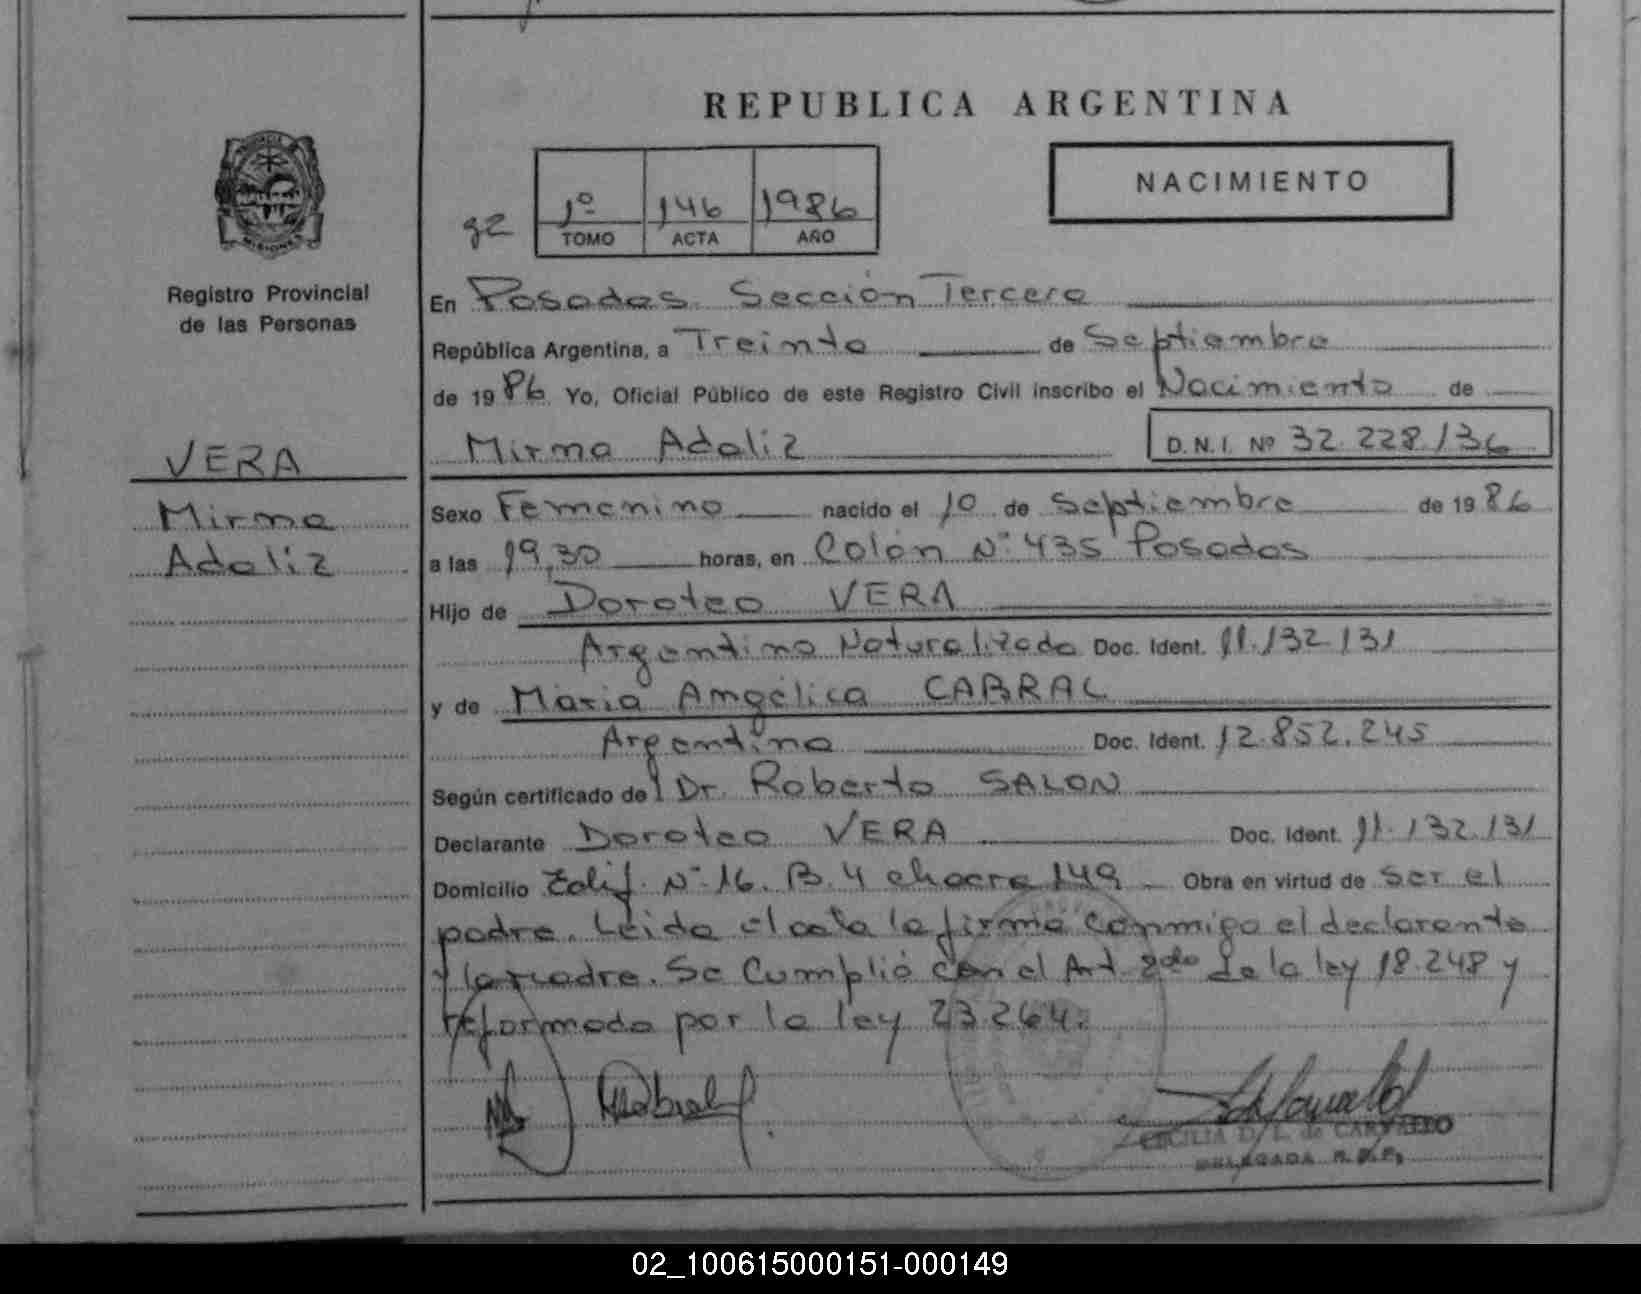 REPUBLICA ARGENTINA
NACIMIENTO
1º 146 1986
TOMO ACTA AÑO
Registro Provincial
de las Personas
VERA
Mirma
Adaliz
En Posadas Sección Tercera
República Argentina, a Treinta de Septiembre
de 1986 Yo, Oficial Público de este Registro Civil inscribo el Nacimiento de
Mirma Adaliz D.N.I. Nº 32.228.136
Sexo Femenino nacido el 10 de Septiembre de 1986
a las 19,30 horas, en Colón Nº 435 Posadas
Hijo de Doroteo VERA
Argentino Naturalizado Doc. Ident. 11.132.131
y de María Angélica CABRAL
Argentina Doc. Ident. 12.852.245
Según certificado del Dr. Roberto SALON
Declarante Doroteo VERA Doc. Ident. 11.132.131
Domicilio Edif. Nº 16. B. 4 chacra 149 Obra en virtud de ser el
padre. Leida el acta la firma conmigo el declarante
y la madre. Se Cumplió con el Art. 2do de la ley 18.248 y
reformado por la ley 23.264.
CECILIA D. L. de CARVALLO
DELEGADA R. P. P.
02_100615000151-000149